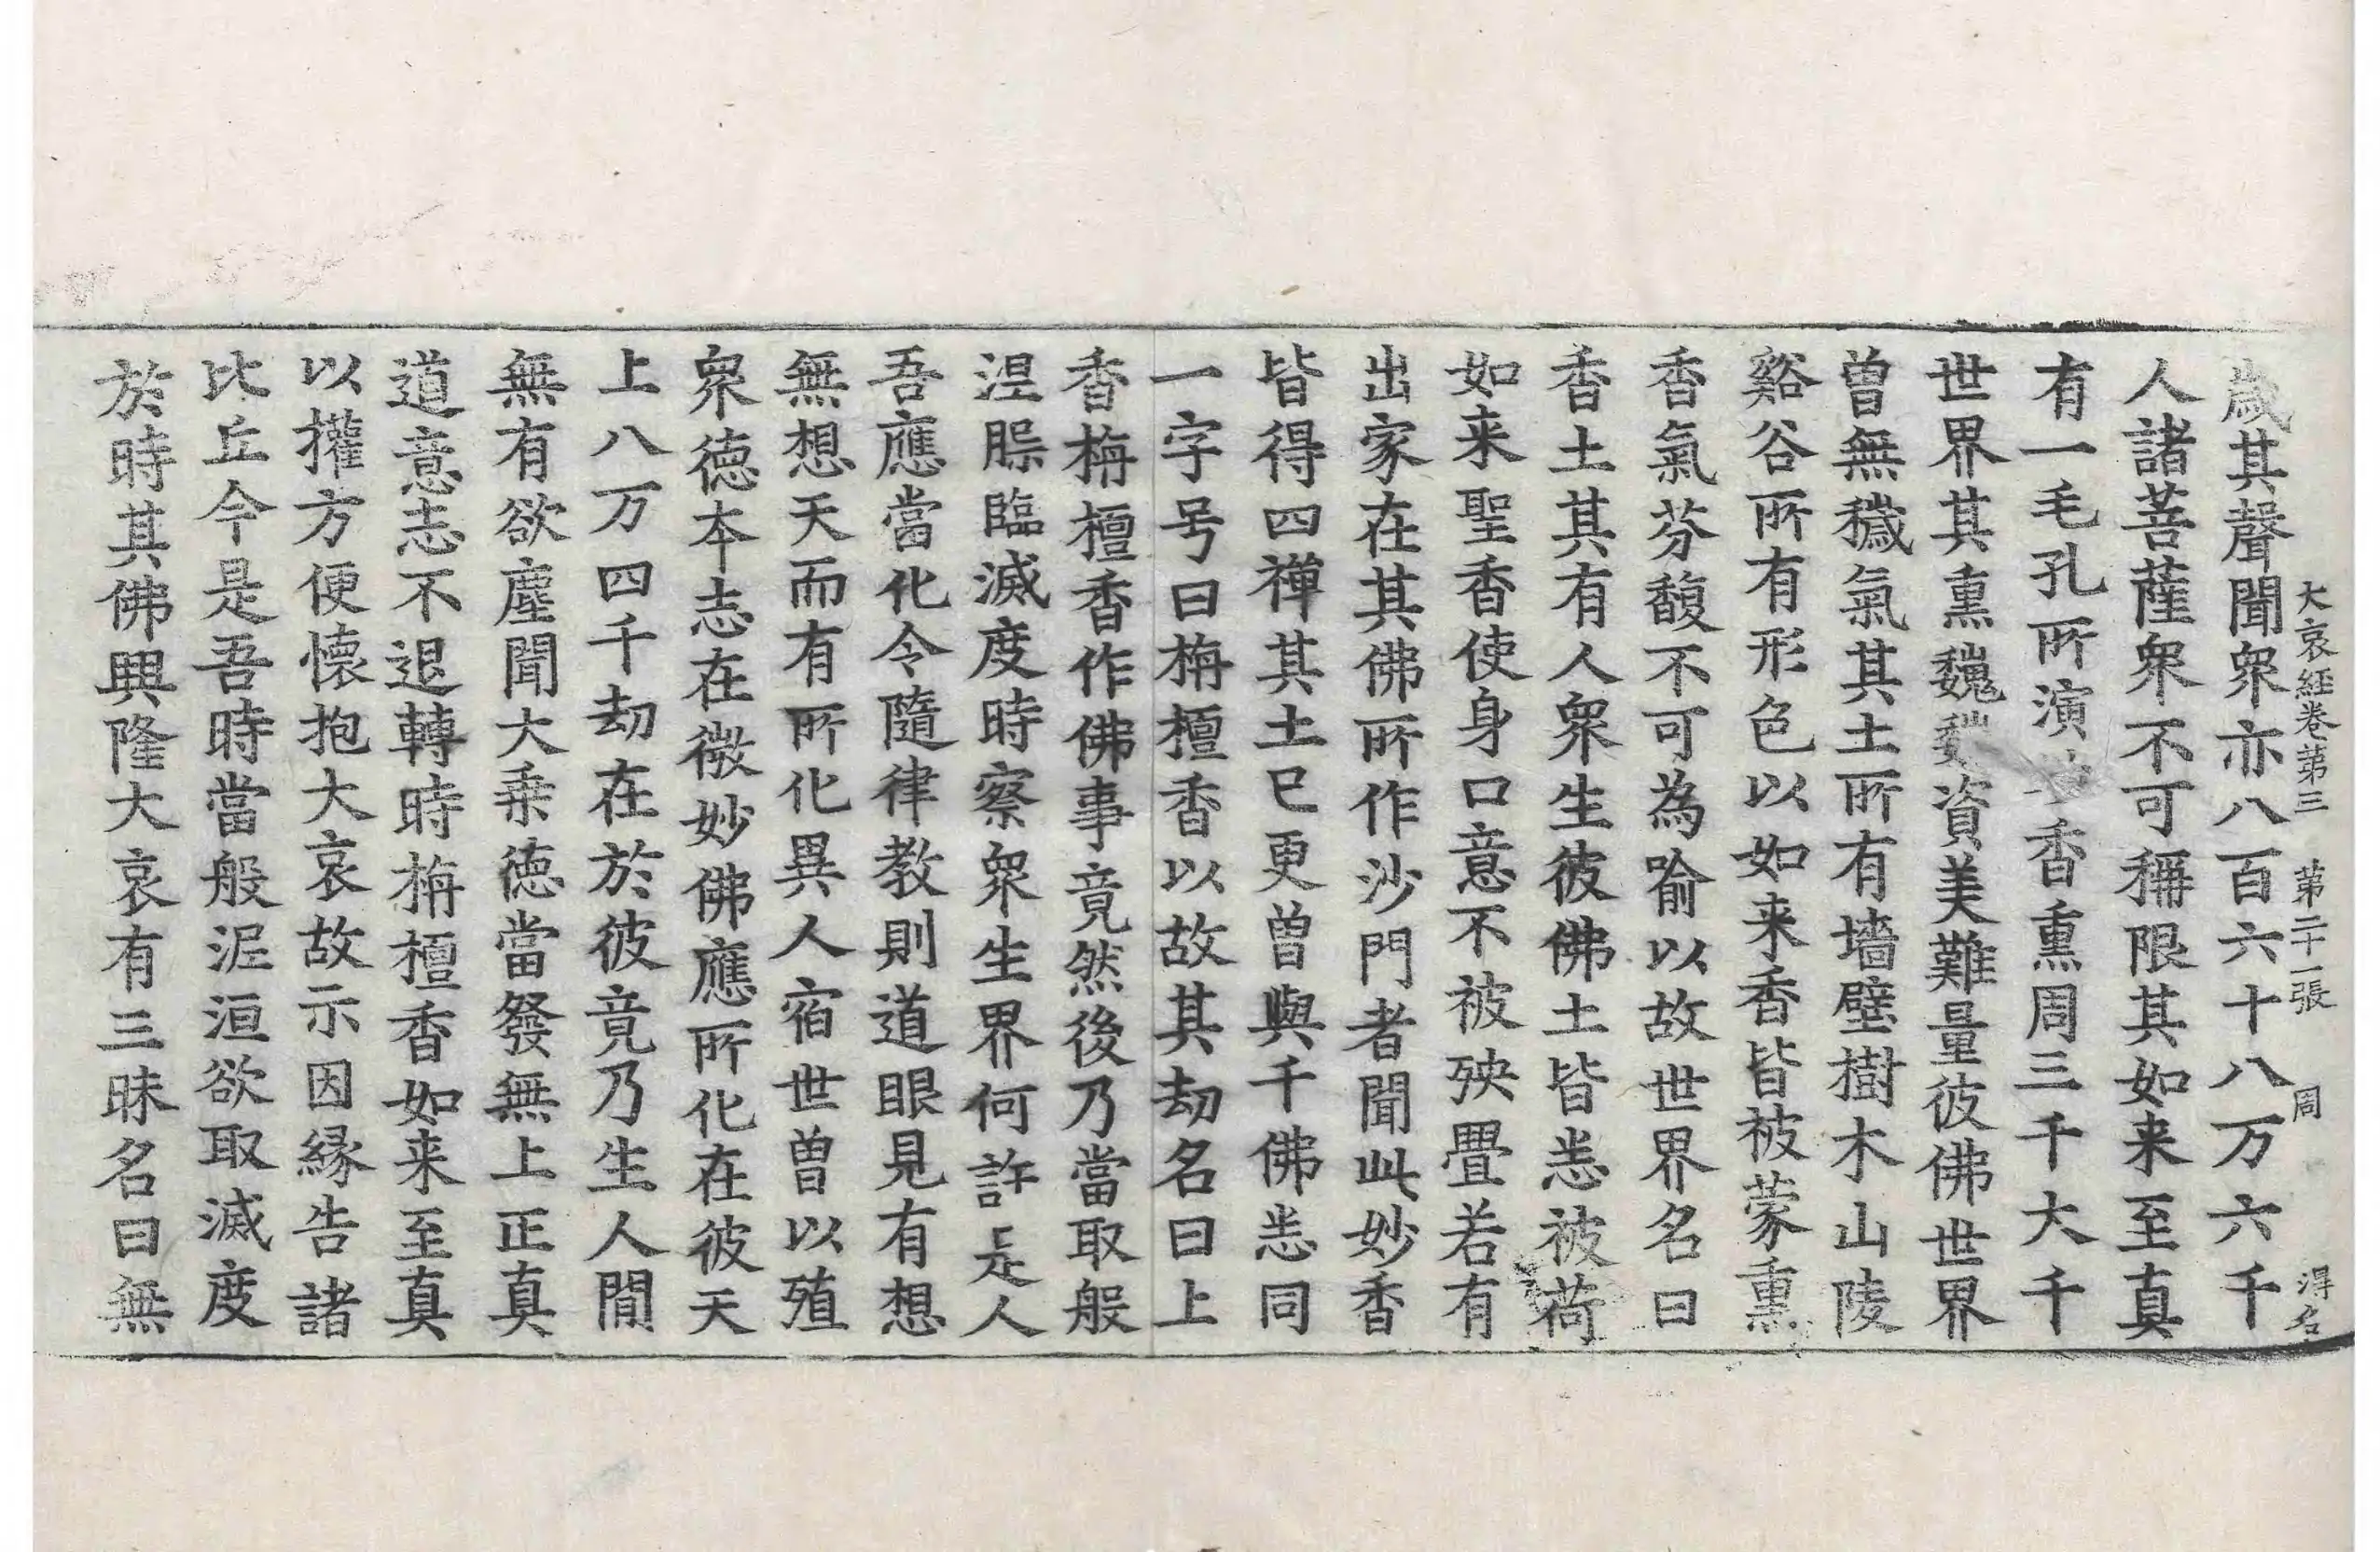 大哀經卷第三 第二十一張 周 得名
歲其聲聞衆亦八百六十八万六千
人諸菩薩衆不可稱限其如来至真
有一毛孔所演香熏周三千大千
世界其熏巍巍資美難量彼佛世界
曽無穢氣其土所有墻壁樹木山陵
谿谷所有形色以如来香皆被蒙熏
香氣芬馥不可為喻以故世界名曰
香土其有人衆生彼佛土皆恙被荷
如来聖香使身口意不被殃疊若有
出家在其佛所作沙門者聞此妙香
皆得四禪其土已更曽與千佛恙同
一字号曰栴檀香以故其劫名曰上
香栴檀香作佛事竟然後乃當取般
涅臨滅度時察衆生界何許是人
吾應當化令隨律教則道眼見有想
無想天而有所化異人宿世曽以殖
衆德本志在微妙佛應所化在彼天
上八万四千劫在於彼竟乃生人間
無有欲塵聞大乗德當發無上正真
道意志不退轉時栴檀香如来至真
以權方便懷抱大哀故示因縁告諸
比丘今是吾時當般泥洹欲取滅度
於時其佛興隆大哀有三昧名曰無